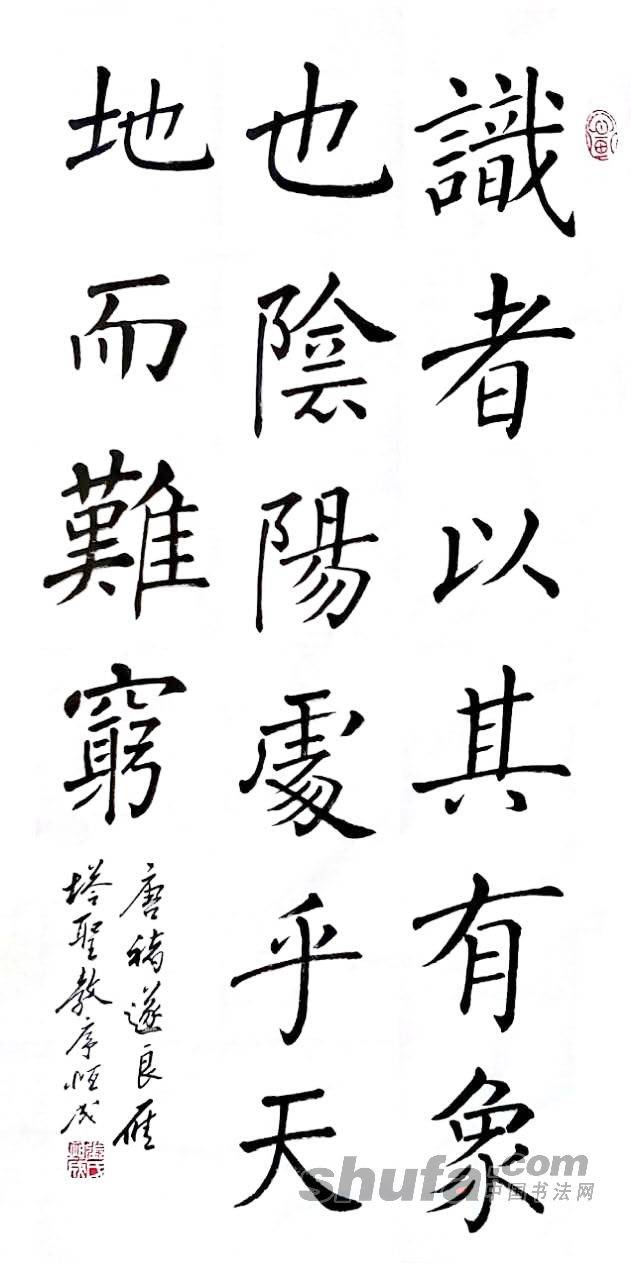 識者以其有象
也陰陽處乎天
地而難窮
唐褚遂良雁
塔聖教序恒成
shufa.com
中国书法网